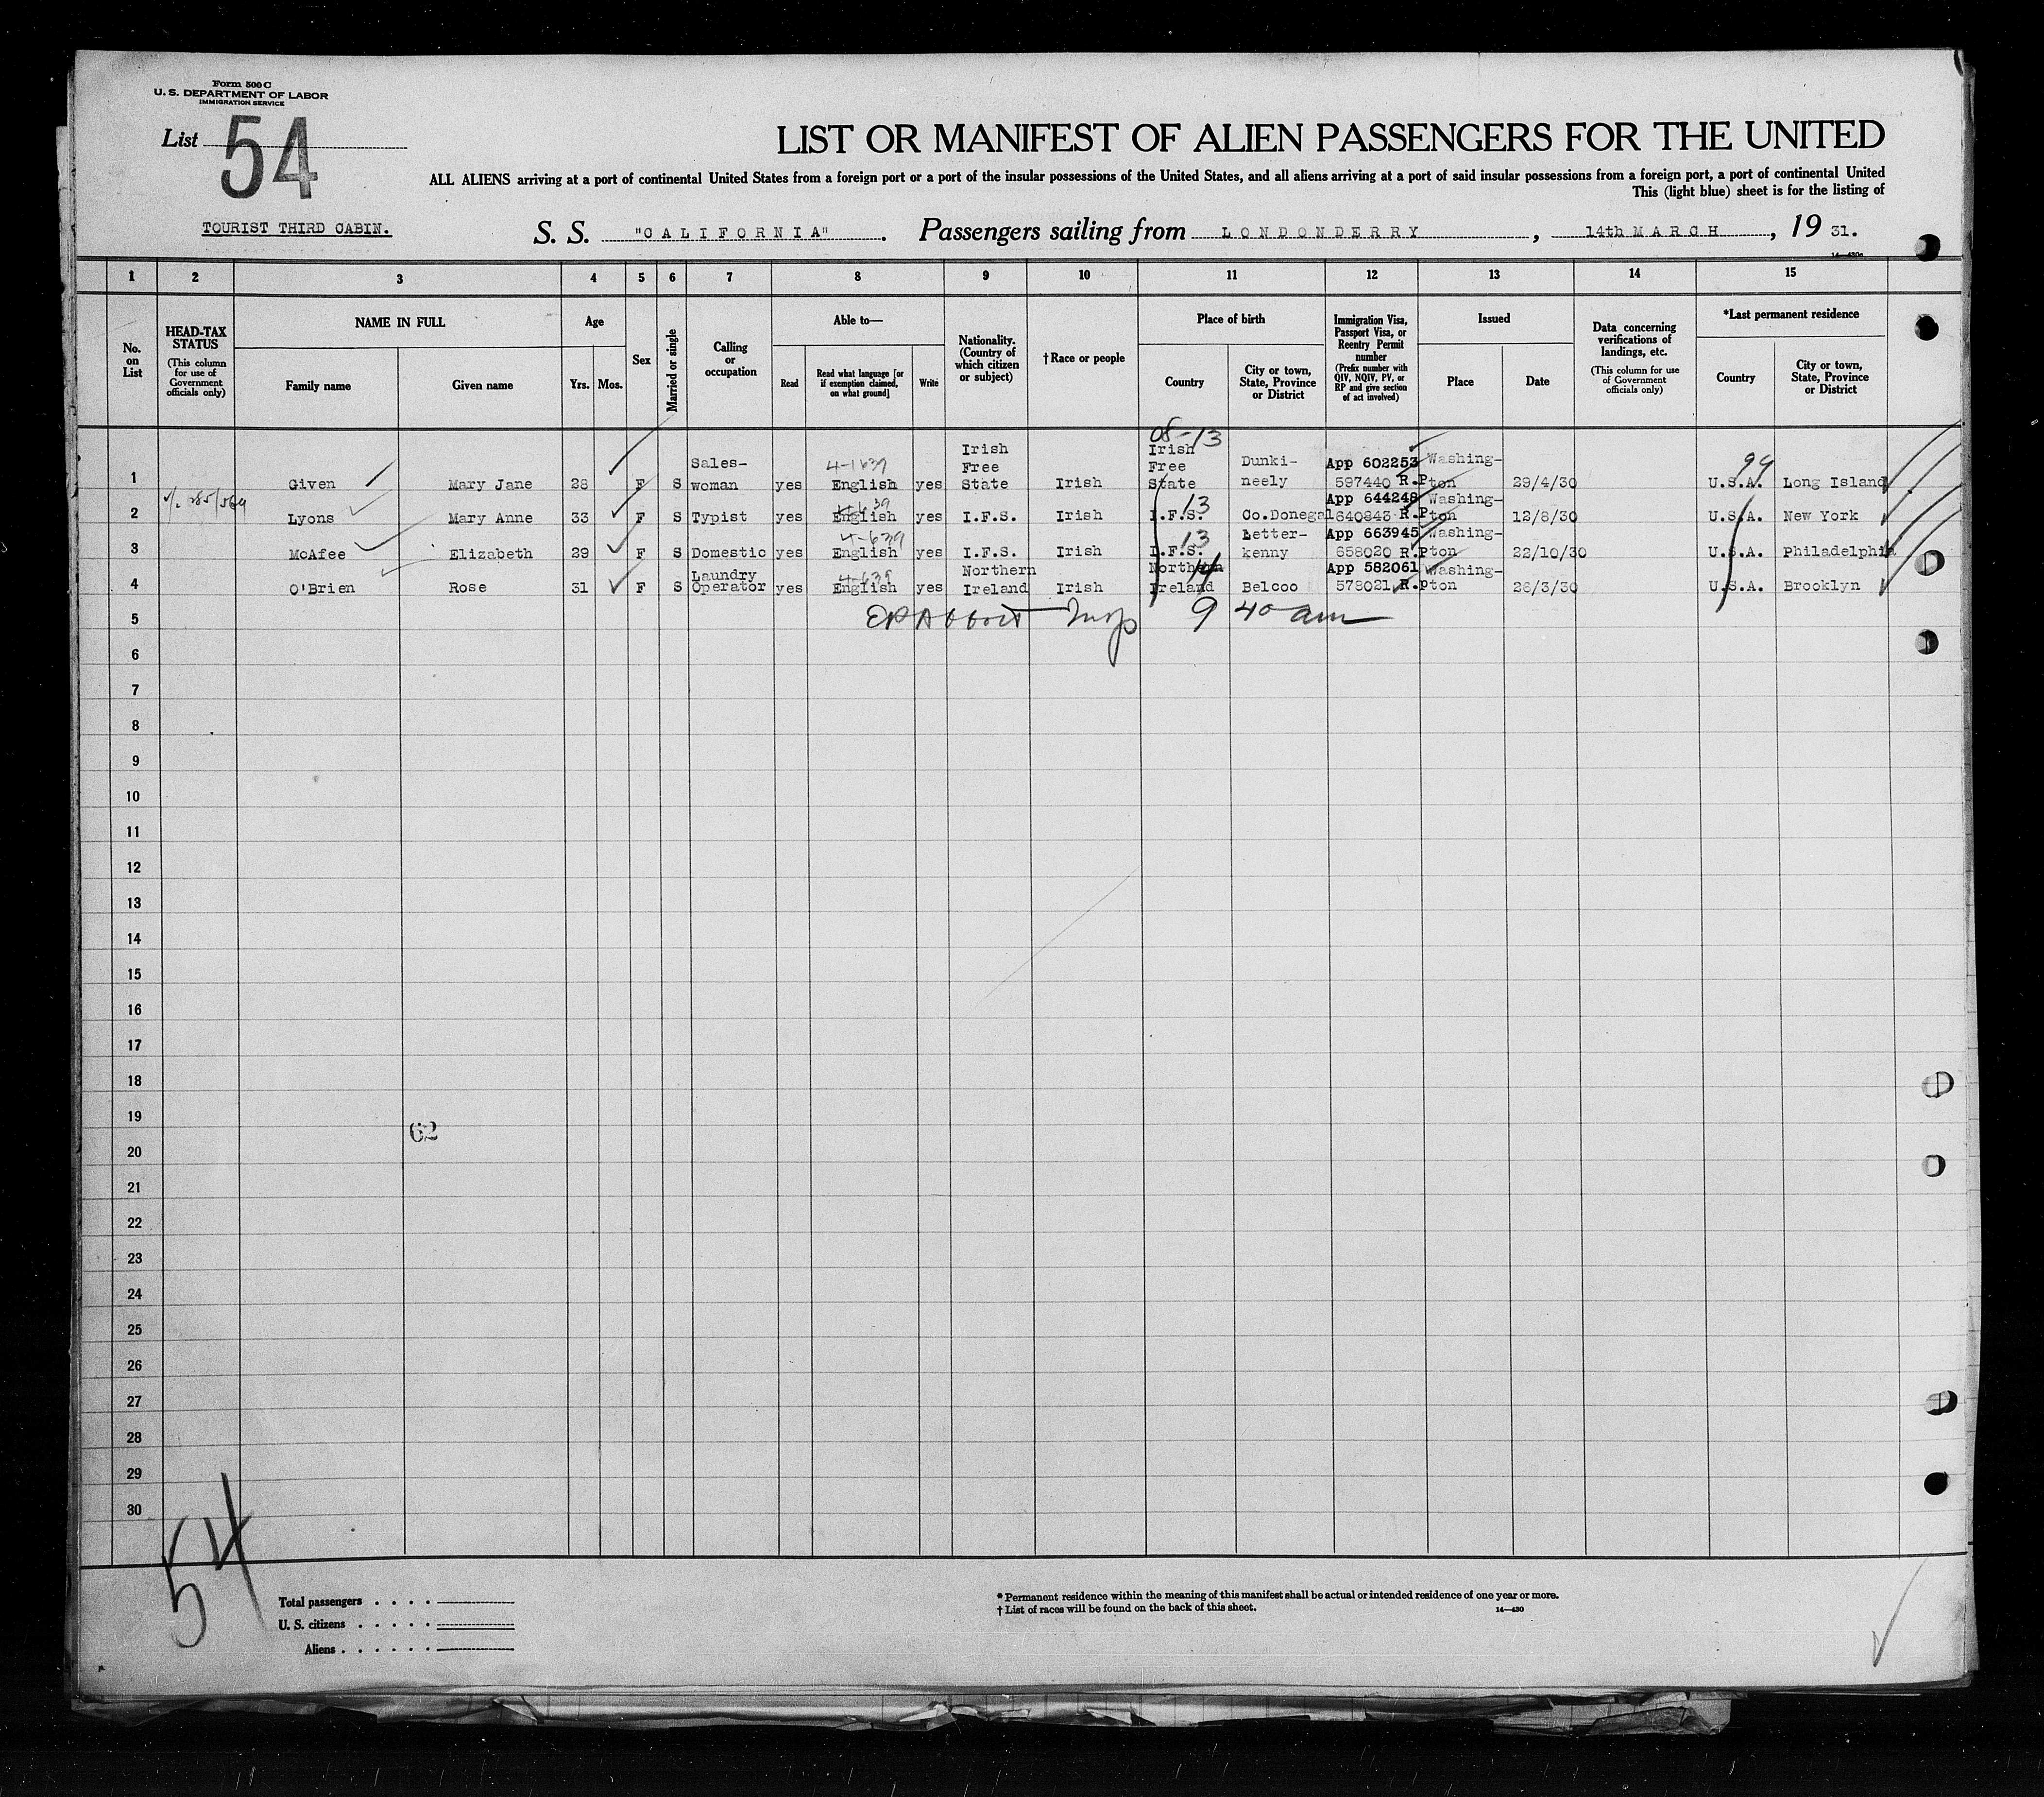 Form 500 C
U. S. DEPARTMENT OF LABOR
IMMIGRATION SERVICE
List 54
LIST OR MANIFEST OF ALIEN PASSENGERS FOR THE UNITED
ALL ALIENS arriving at a port of continental United States from a foreign port or a port of the insular possessions of the United States, and all aliens arriving at a port of said insular possessions from a foreign port, a port of continental United
This (light blue) sheet is for the listing of
TOURIST THIRD CABIN.
S. S. "CALIFORNIA". Passengers sailing from LONDONDERRY, 14th MARCH, 19 31.
1 2 3 4 5 6 7 8 9 10 11 12 13 14 15
No. on List
HEAD-TAX STATUS (This column for use of Government officials only)
NAME IN FULL
Family name Given name
Age
Yrs. Mos.
Sex
Married or single
Calling or occupation
Able to—
Read
Read what language [or if exemption claimed, on what ground]
Write
Nationality. (Country of which citizen or subject)
†Race or people
Place of birth
Country
City or town, State, Province or District
Immigration Visa, Passport Visa, or Reentry Permit number (Prefix number with QIV, NQIV, PV, or RP and give section of act involved)
Issued
Place Date
Data concerning verifications of landings, etc. (This column for use of Government officials only)
*Last permanent residence
Country
City or town, State, Province or District
08-13
1 Given Mary Jane 28 F S Sales-woman yes 4-1639 English yes Irish Free State Irish Irish Free State Dunki-neely App 602253 597440 R.P Washing-ton 29/4/30 99 U.S.A. Long Island
2 Lyons Mary Anne 33 F S Typist yes English yes I.F.S. Irish I.F.S. 13 Co.Donegal App 644248 640843 R.P Washing-ton 12/8/30 U.S.A. New York
3 McAfee Elizabeth 29 F S Domestic yes 4-639 English yes I.F.S. Irish I.F.S. 13 Letter-kenny App 663945 658020 R.P Washing-ton 22/10/30 U.S.A. Philadelphia
4 O'Brien Rose 31 F S Laundry Operator yes 4-639 English yes Northern Ireland Irish Northern Ireland 14 Belcoo App 582061 578021 R.P Washing-ton 26/3/30 U.S.A. Brooklyn
5 Abbott Insp 9 40 am
6
7
8
9
10
11
12
13
14
15
16
17
18
19
62
20
21
22
23
24
25
26
27
28
29
30
54
Total passengers
U. S. citizens
Aliens
* Permanent residence within the meaning of this manifest shall be actual or intended residence of one year or more.
† List of races will be found on the back of this sheet.
14—430